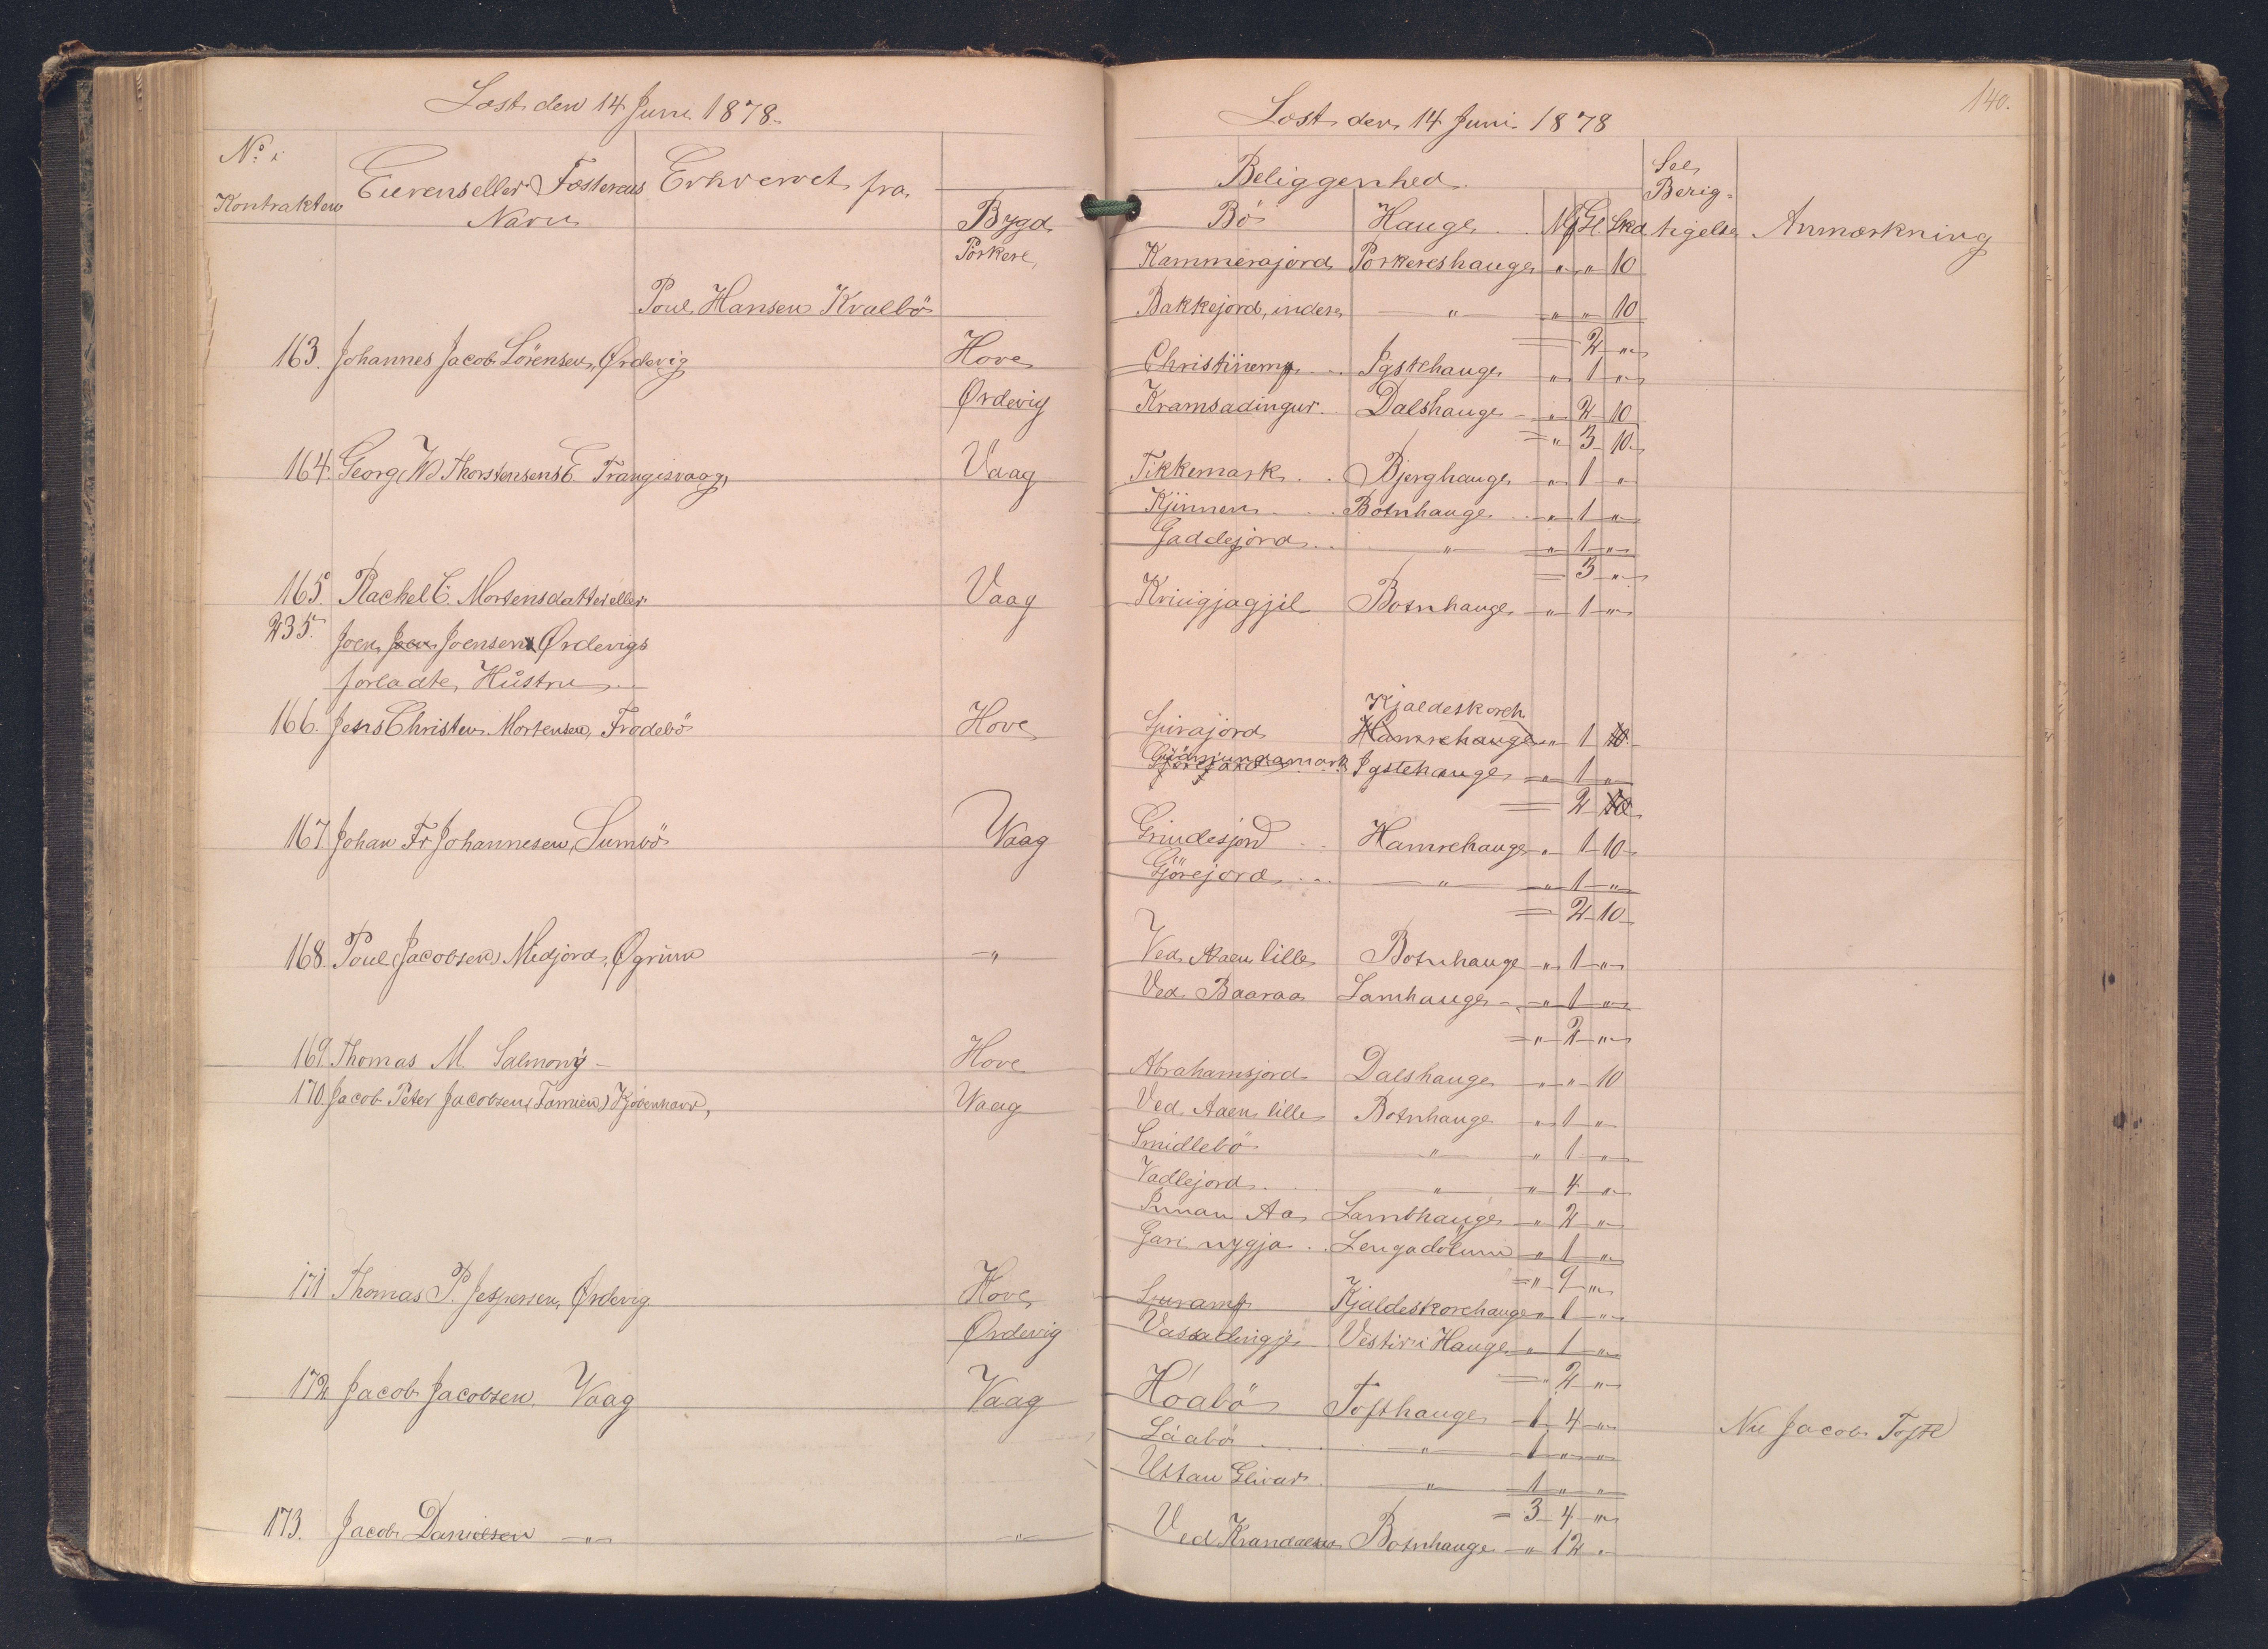 Læst den 14 Juni 1878.
No i Kontrakten
Eierens eller Fæsterens Navn
Erhvervet fra
Bygd
Porkere
Poul Hansen Kvalbö
163. Johannes Jacob Sörensen, Ørdevig Hove
Ørdevig
164. Georg (W) Thorstensen Trangisvaag, Vaag
165. Rachel C. Mortensdatter eller Vaag
235. Joen Joen Joensen Ørdevigs
forladte Hustru
166. Jens Christen Mortensen, Frodebö Hove
167. Johan Fr Johannesen, Sumbö Waag
168. Poul (Jacobsen) Midjord, Øgrim — „
169. Thomas M. Salmony — Hove
170. Jacob Peter Jacobsen (Famien) Kjöbenhavn, Waag
171 Thomas P. Jespersen, Ørdevig Hove
Ørdevig
172 Jacob Jacobsen, Vaag Vaag
173. Jacob Danielsen — „ — „
140.
Læst den 14 Juni 1878
Beliggenhed
Bö Hauge M G. Skd.
See Berig-
tigelse
Anmærkning
Kammerajord Porkereshauge „ „ 10
Bakkejord, indere — „ — „ „ 10
= 2 „
Christiinemp Igstehauge „ 1 „
Kramsadingur Dalshauge „ 2 10
= „ 3 10
Tikkemark Bjerghauge „ 1 „
Kjinnen Botnhauge „ 1 „
Gaddejord — „ — „ 1 „
= 3 „
Kriugjagjil Botnhauge „ 1 „
Kjaldeskorch
Lurajord Hamrehauge „ 1 10
Gudmundamark Igstehauge „ 1 „
= 2 10
Grindesjord Hamrehauge „ 1 10
Gjörejord — „ — „ 1 „
= 2 10
Ved Aaen lille Botnhauge „ 1 „
Ved Baaraa Lamhauge „ 1 „
= „ 2 „
Abrahamsjord Dalshauge „ „ 10
Ved Aaen lille Botnhauge „ 1 „
Smidlebö — „ — „ 1 „
Vadlejord — „ — „ 4 „
Innan Aa Lambhauge „ 2 „
Gari nygja Lengadölum „ 1 „
= „ 9 „
Luramp Kjaldeskorehauge „ 1 „
Vassadingje Vestiri Hauge „ 1 „
= „ 2 „
Hoabö Tofthauge 1 4 „
Láabö — „ — 1 „ „
Uttan Glivar — „ — 1 „ „
= 3 4 „
Nu Jacob Toftе
Ved Krandalsaa Botnhauge „ 12 „